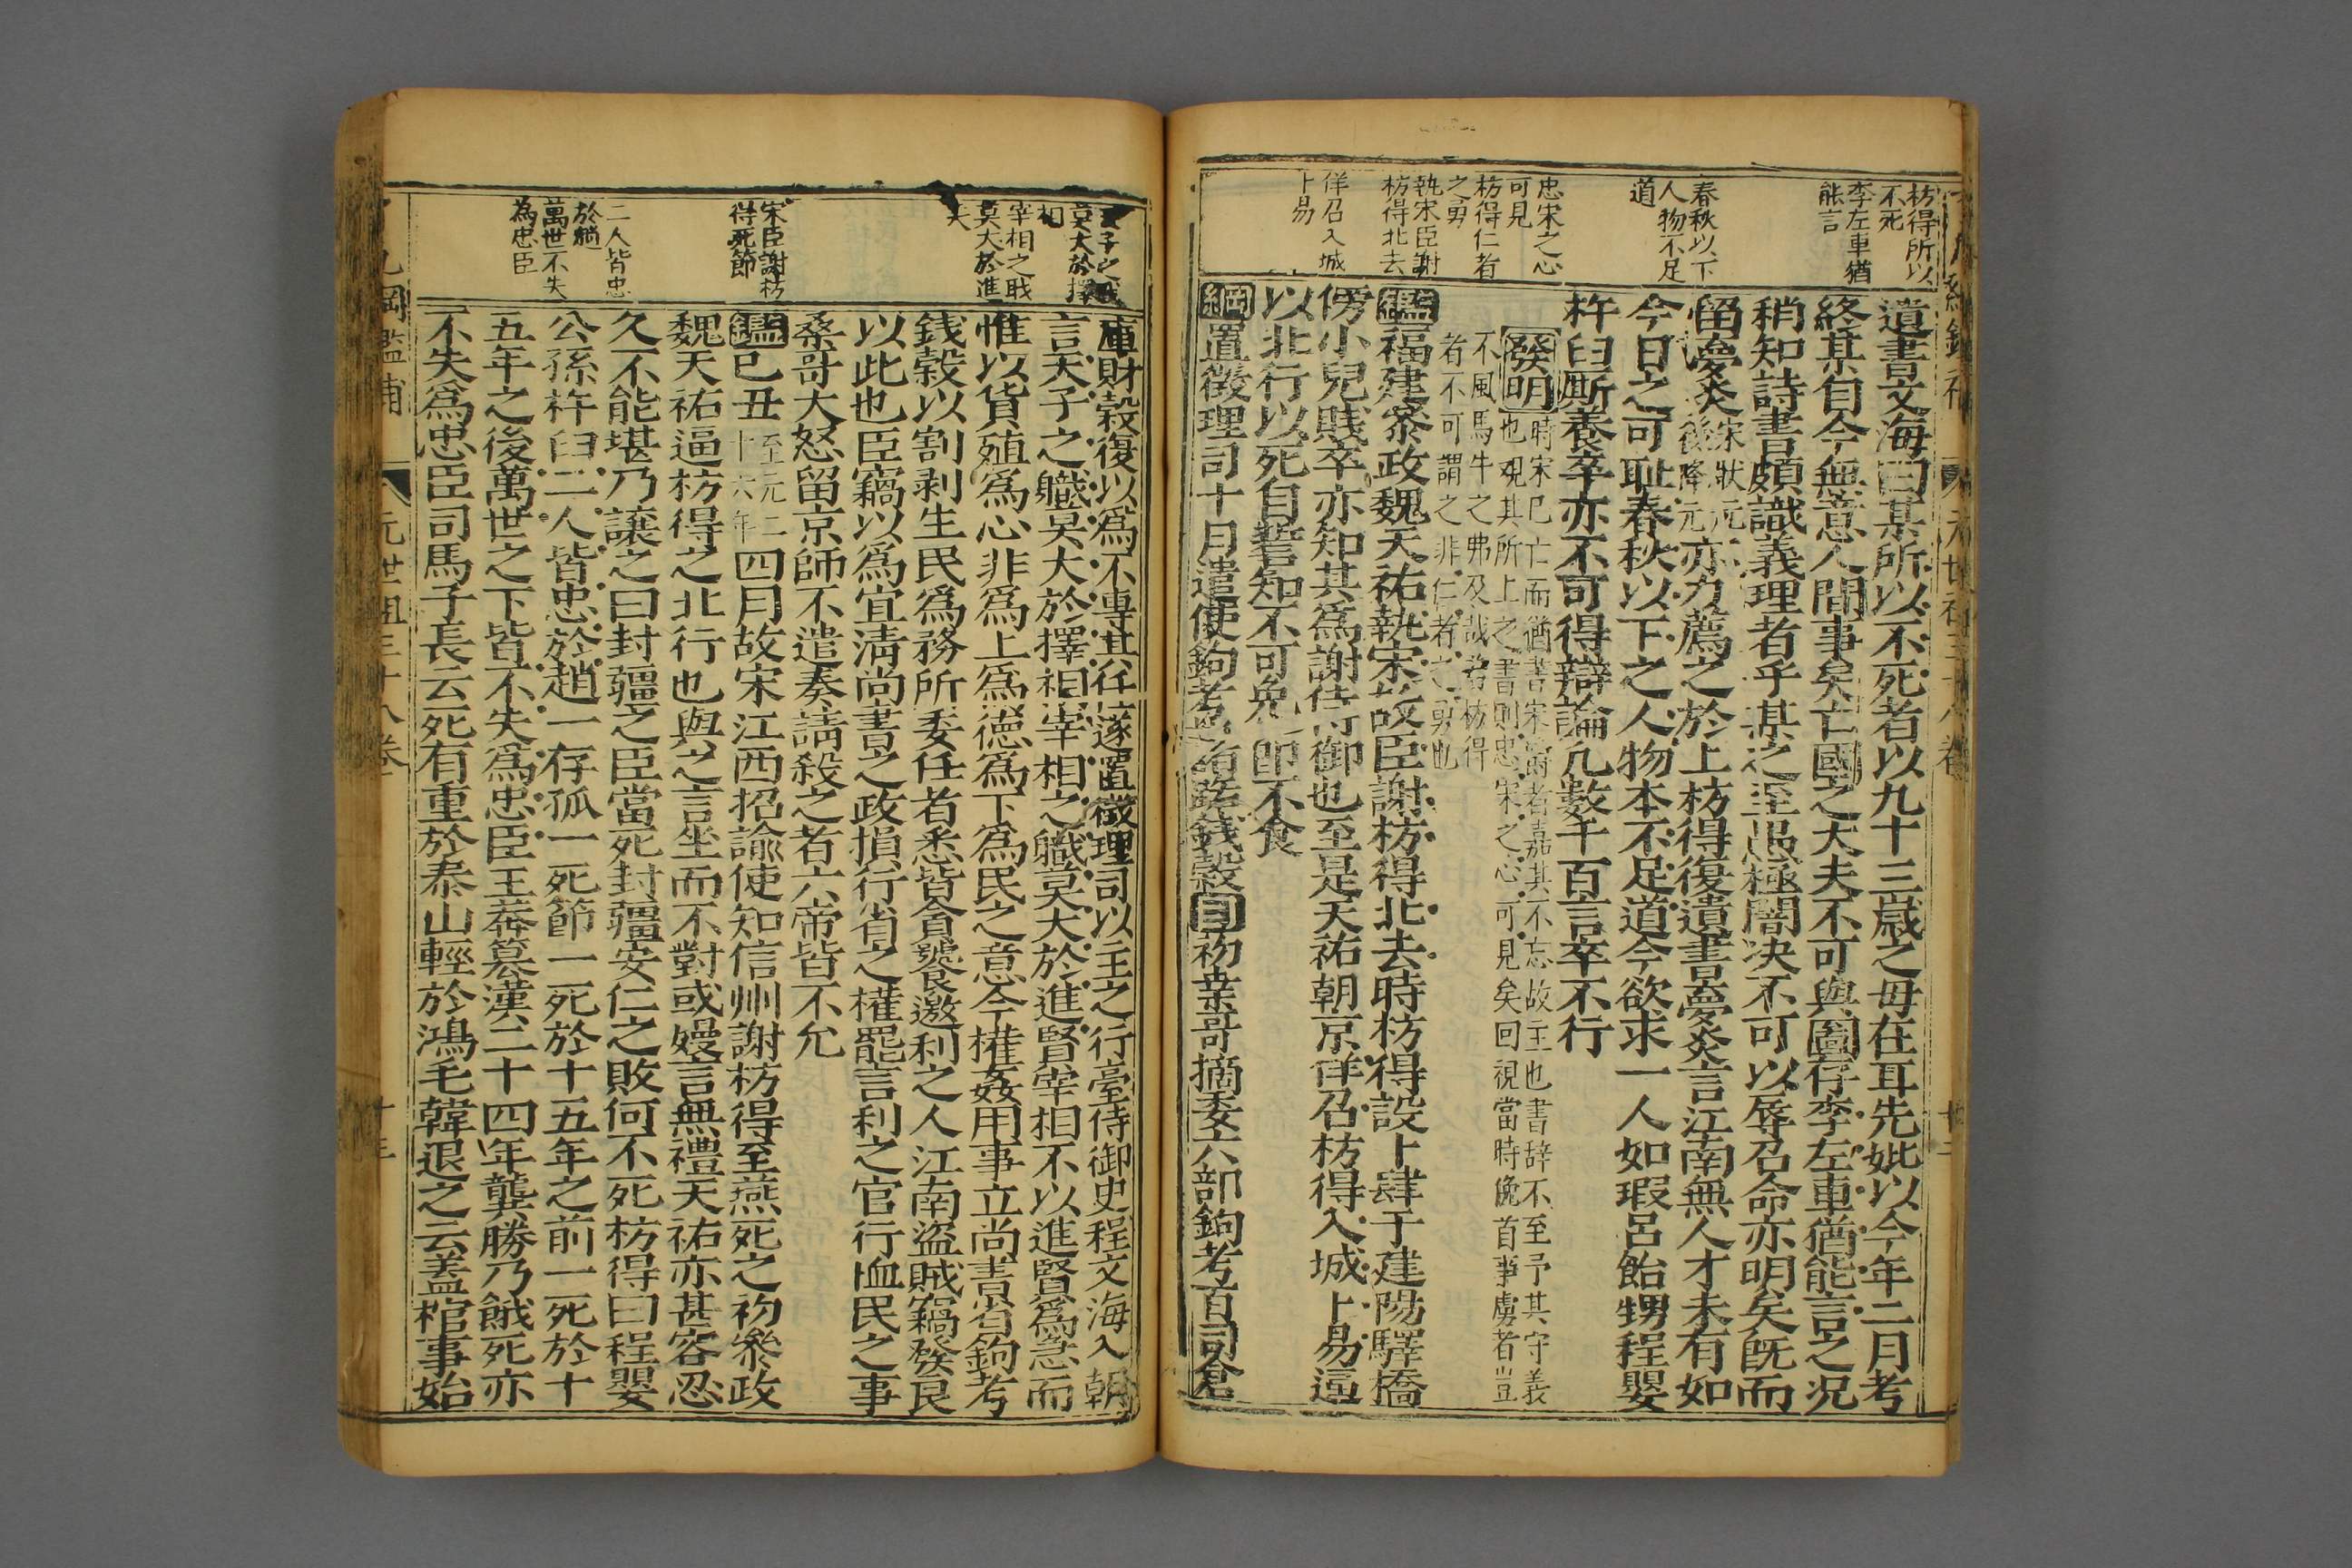 枋得所以
不死
李左車猶
能言
春秋以下
人物不足
道
忠宋之心
可見
枋得仁者
之勇
執宋臣謝
枋得北去
佯召入城
卜易
遺書文海曰某所以不死者以九十三歲之母在耳先妣以今年二月考
終某自今無意人間事矣亡國之大夫不可與圖存李左車猶能言之况
稍知詩書頗識義理者乎某之至愚極闇决不可以辱召命亦明矣旣而
留夢炎宋狀元後降元亦力薦之於上枋得復遺書夢炎言江南無人才未有如
今日之可耻春秋以下之人物本不足道今欲求一人如瑕呂飴甥程嬰
杵臼厮養卒亦不可得辯論凡數千百言卒不行
發明時宋巳亡而猶書宋者嘉其不忘故主也書辞不至予其守義
也觀其所上之書則忠宋之心可見矣回視當時俛首事虜者豈
不風馬牛之弗及哉若枋得
者不可謂之非仁者之勇也
鑑福建叅政魏天祐執宋故臣謝枋得北去時枋得設卜肆于建陽驛橋
傍小兒賤卒亦知其爲謝侍御也至是天祐朝京佯召枋得入城卜易逼
以北行以死自誓知不可免卽不食
綱置徵理司十月遣使鉤考諸路錢穀目初桒哥摘委六部鉤考百司倉
天子之職
莫大於擇
相
宰相之職
莫大於進
夫
宋臣謝枋
得死節
二人皆忠
於趙
萬世不失
為忠臣
庫財穀復以爲不專其任遂置徵理司以主之行臺侍御史程文海入朝
言天子之職莫大於擇相宰相之職莫大於進賢宰相不以進賢爲急而
惟以貨殖爲心非爲上爲德爲下爲民之意今權姦用事立尚書省鉤考
錢穀以割剥生民爲務所委任者悉皆貪饕邀利之人江南盜賊竊發良
以此也臣竊以爲宜清尚書之政損行省之權罷言利之官行恤民之事
桑哥大怒留京師不遣奏請殺之者六帝皆不允
鑑巳丑至元二十六年四月故宋江西招諭使知信州謝枋得至燕死之初參政
魏天祐逼枋得之北行也與之言坐而不對或嫚言無禮天祐亦甚容忍
久不能堪乃讓之曰封疆之臣當死封疆安仁之敗何不死枋得曰程嬰
公孫杵臼二人皆忠於趙一存孤一死節一死於十五年之前一死於十
五年之後萬世之下皆不失爲忠臣王莽篡漢二十四年龔勝乃餓死亦
不失爲忠臣司馬子長云死有重於泰山輕於鴻毛韓退之云盖棺事始
綱鑑補 元世祖三十八卷